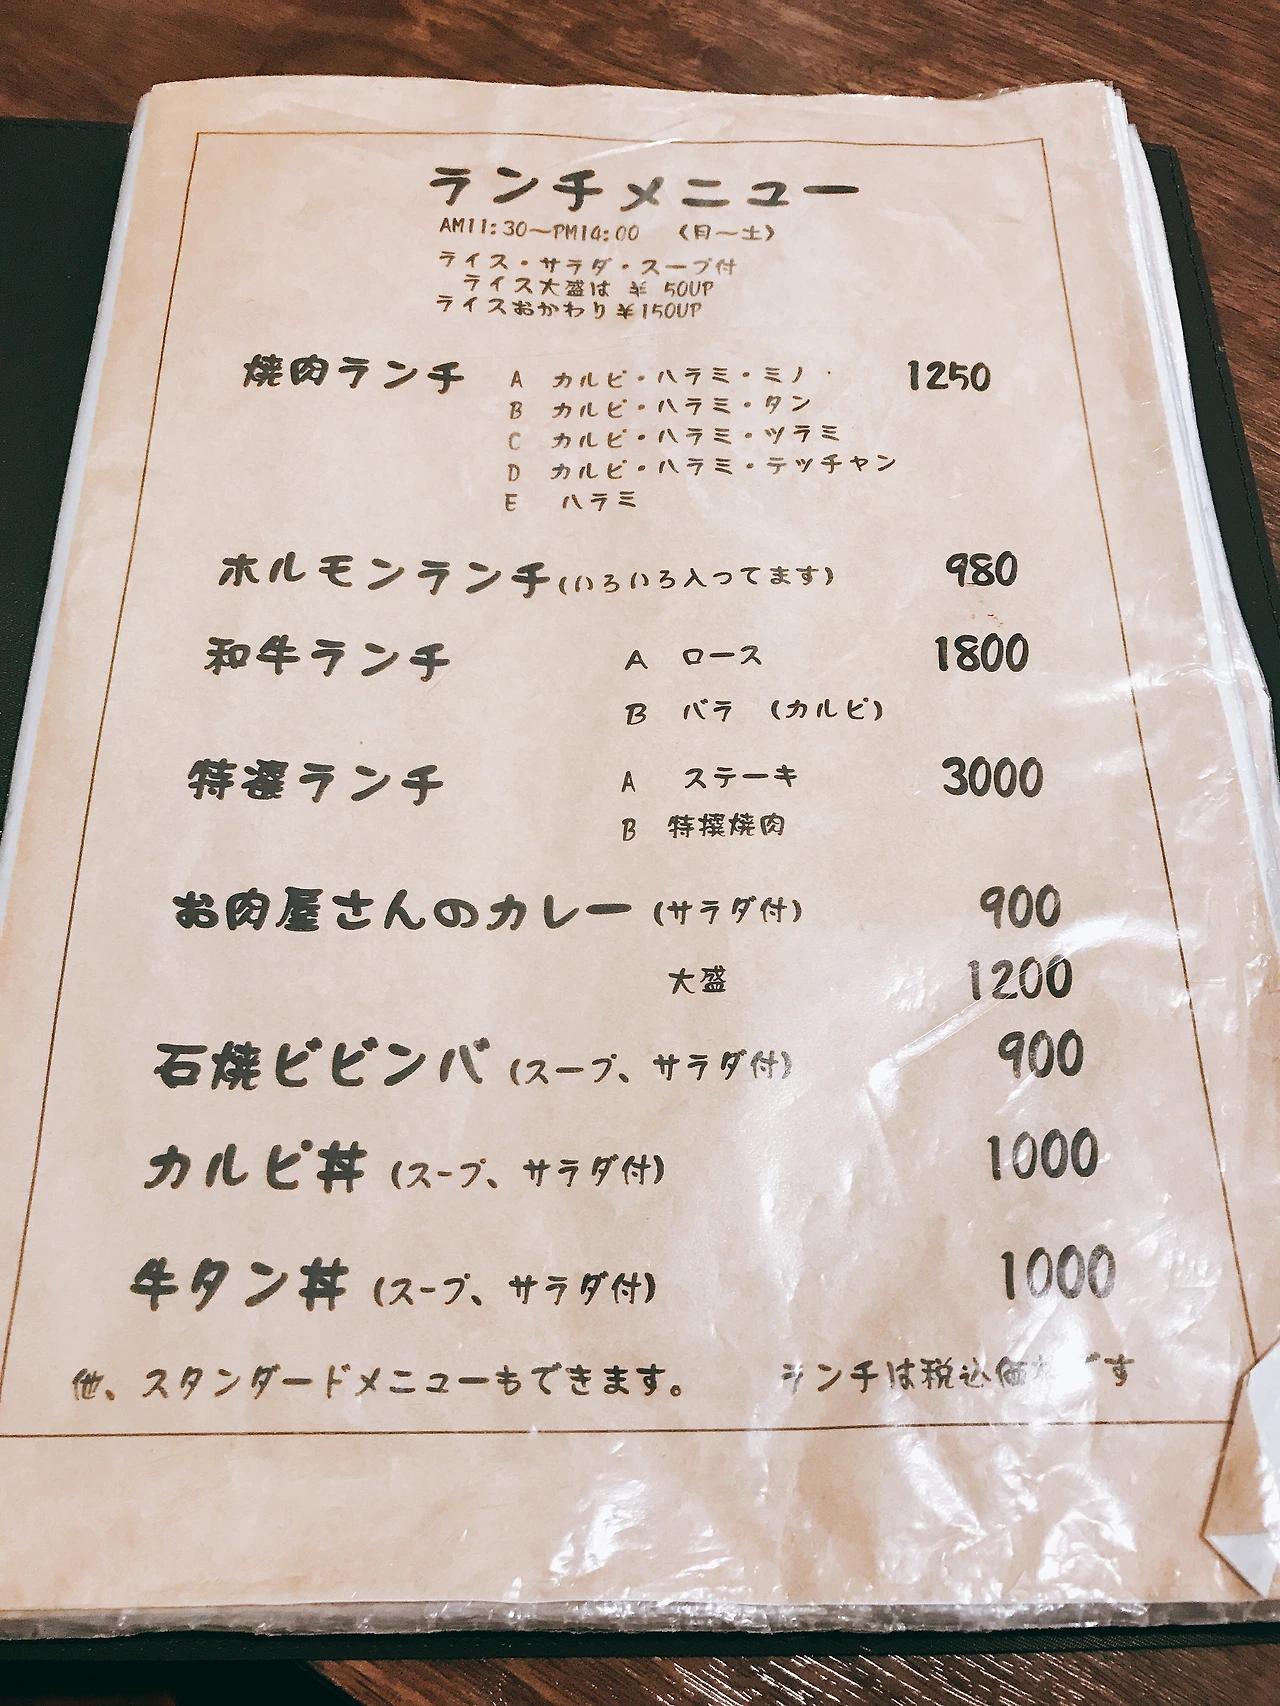 ランチメニュー
AM11:30～PM14:00 （月～土）
ライス・サラダ・スープ付
ライス大盛は ¥ 50UP
ライスおかわり¥150UP
焼肉ランチ A カルビ・ハラミ・ミノ 1250
B カルビ・ハラミ・タン
C カルビ・ハラミ・ツラミ
D カルビ・ハラミ・テッチャン
E ハラミ
ホルモンランチ(いろいろ入ってます) 980
和牛ランチ A ロース 1800
B バラ (カルビ)
特選ランチ A ステーキ 3000
B 特撰焼肉
お肉屋さんのカレー (サラダ付) 900
大盛 1200
石焼ビビンバ (スープ、サラダ付) 900
カルビ丼 (スープ、サラダ付) 1000
牛タン丼 (スープ、サラダ付) 1000
他、スタンダードメニューもできます。 ランチは税込価格です